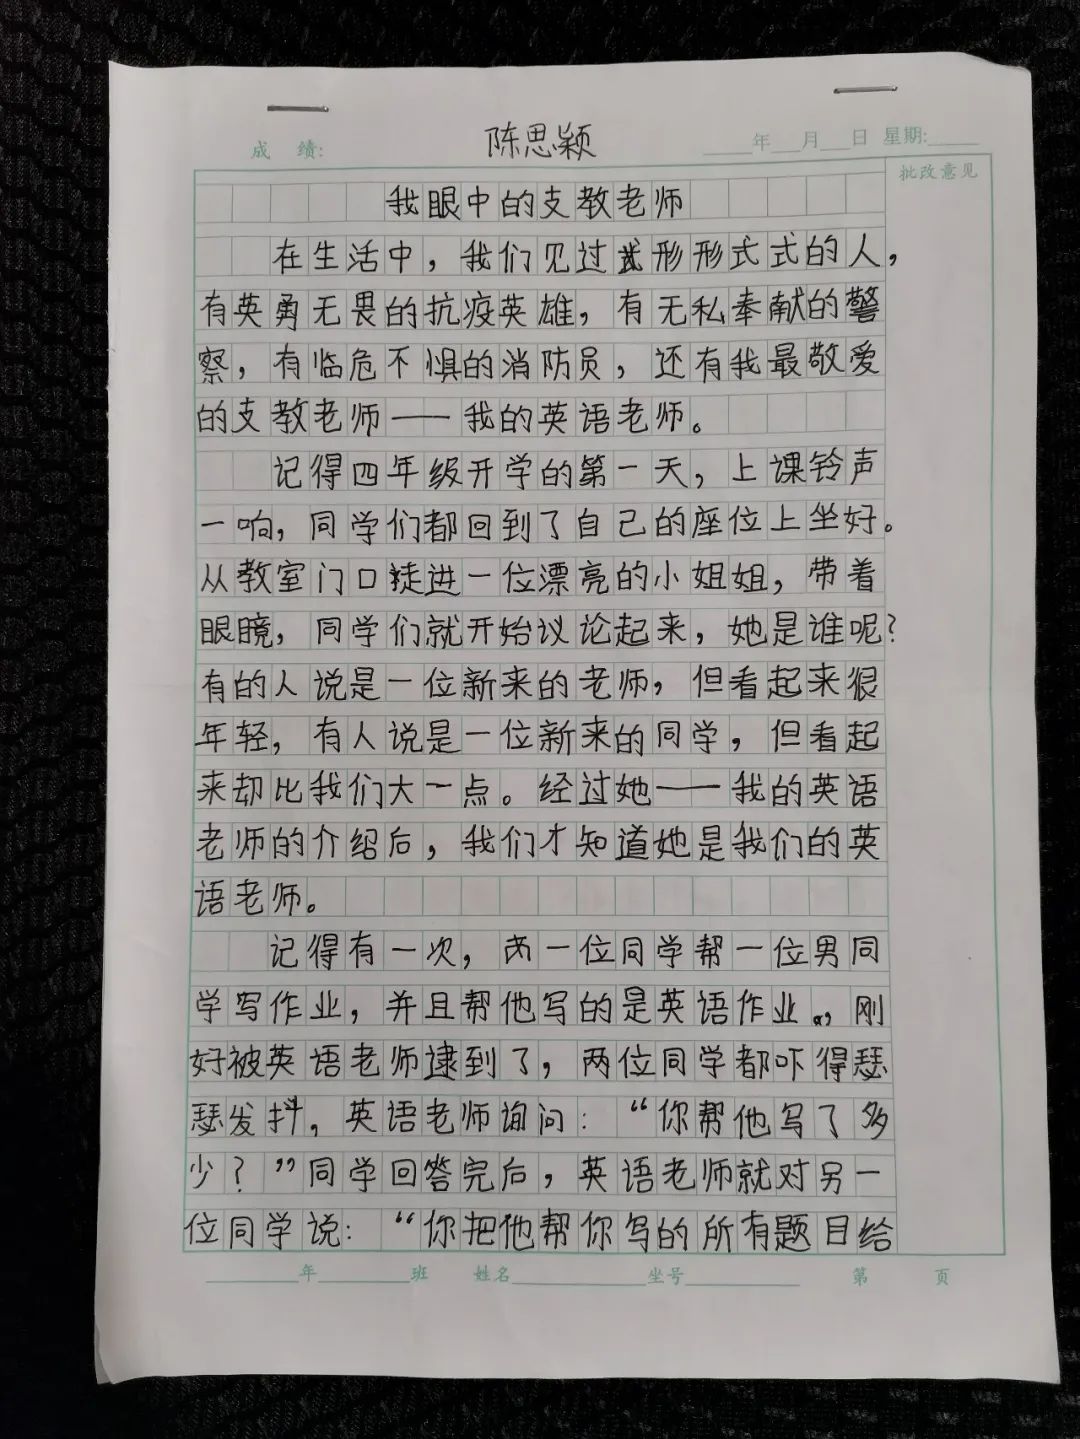 陈思颖
成 绩: 年 月 日 星期:
批改意见
我眼中的支教老师
在生活中，我们见过形形式式的人，
有英勇无畏的抗疫英雄，有无私奉献的警
察，有临危不惧的消防员，还有我最敬爱
的支教老师——我的英语老师。
记得四年级开学的第一天，上课铃声
一响，同学们都回到了自己的座位上坐好。
从教室门口走进一位漂亮的小姐姐，带着
眼镜，同学们就开始议论起来，她是谁呢？
有的人说是一位新来的老师，但看起来很
年轻，有人说是一位新来的同学，但看起
来却比我们大一点。经过她——我的英语
老师的介绍后，我们才知道她是我们的英
语老师。
记得有一次，一位同学帮一位男同
学写作业，并且帮他写的是英语作业，刚
好被英语老师逮到了，两位同学都吓得瑟
瑟发抖，英语老师询问：“你帮他写了多
少？”同学回答完后，英语老师就对另一
位同学说：“你把他帮你写的所有题目给
年 班 姓名 坐号 第 页